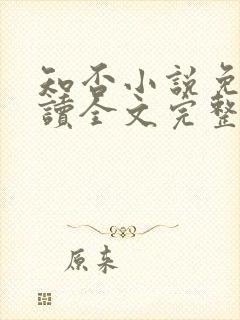 知否小說免
讀全文完整
原来